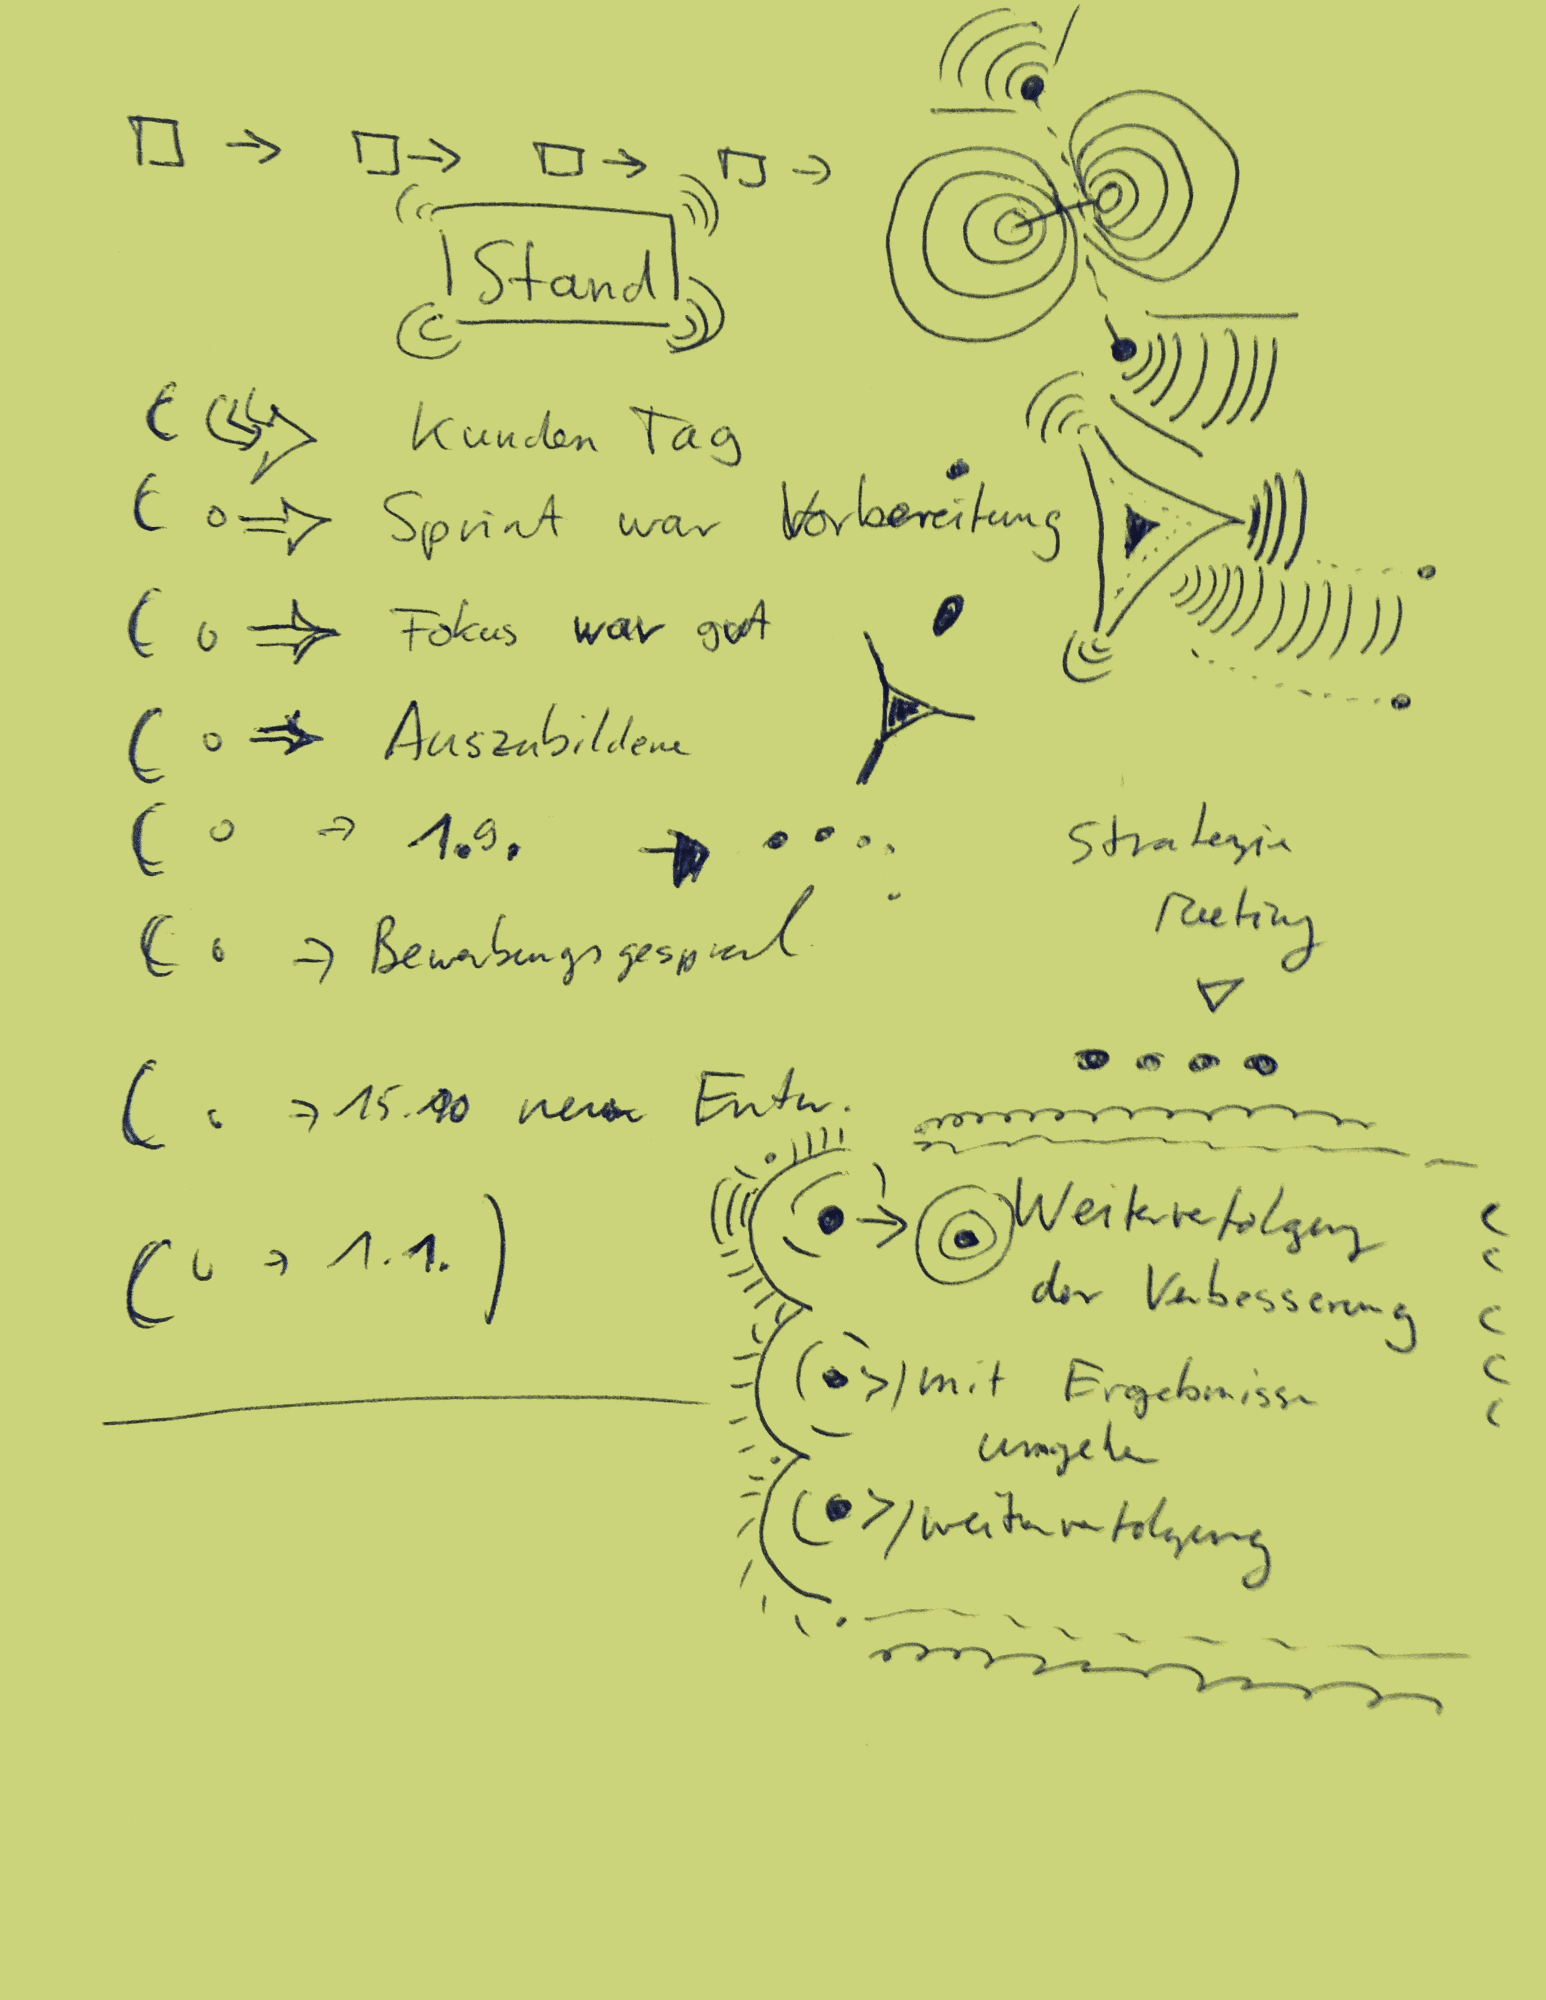 Stand
Kunden Tag
Sprint war Vorbereitung
Fokus war gut
Auszubildene
1.9.
Bewerbungsgespräch
15.10 neue Entw.
1.1.
Strategie
Meeting
Weiterverfolgung
der Verbesserung
mit Ergebnisse
umgehen
weiterverfolgung